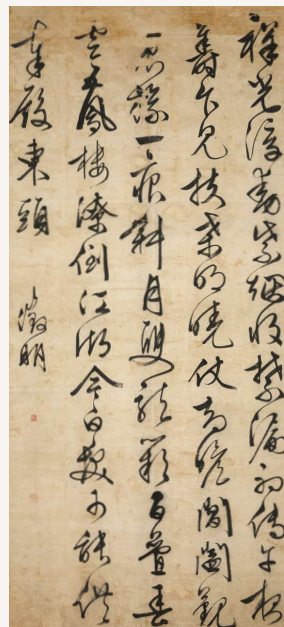 祥光浮動紫烟收禁漏初傳午夜
籌乍見扶桑明曉仗高瞻閶闔覲
一痕斜月雙龍影百疊春
雲五鳳樓潦倒江湖今白髮可能供
奉殿東頭
徵明